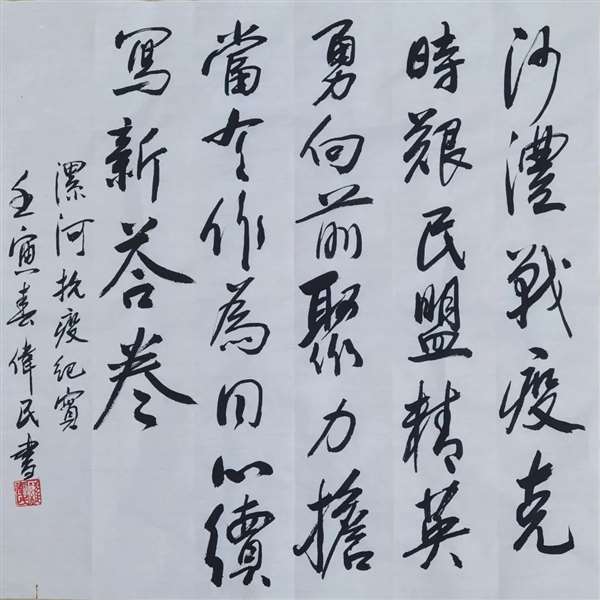 沙澧戰疫克
時艱民盟精英
勇向前聚力擔
當作為同心續
寫新答卷
漯河抗疫紀實
壬寅春偉民書